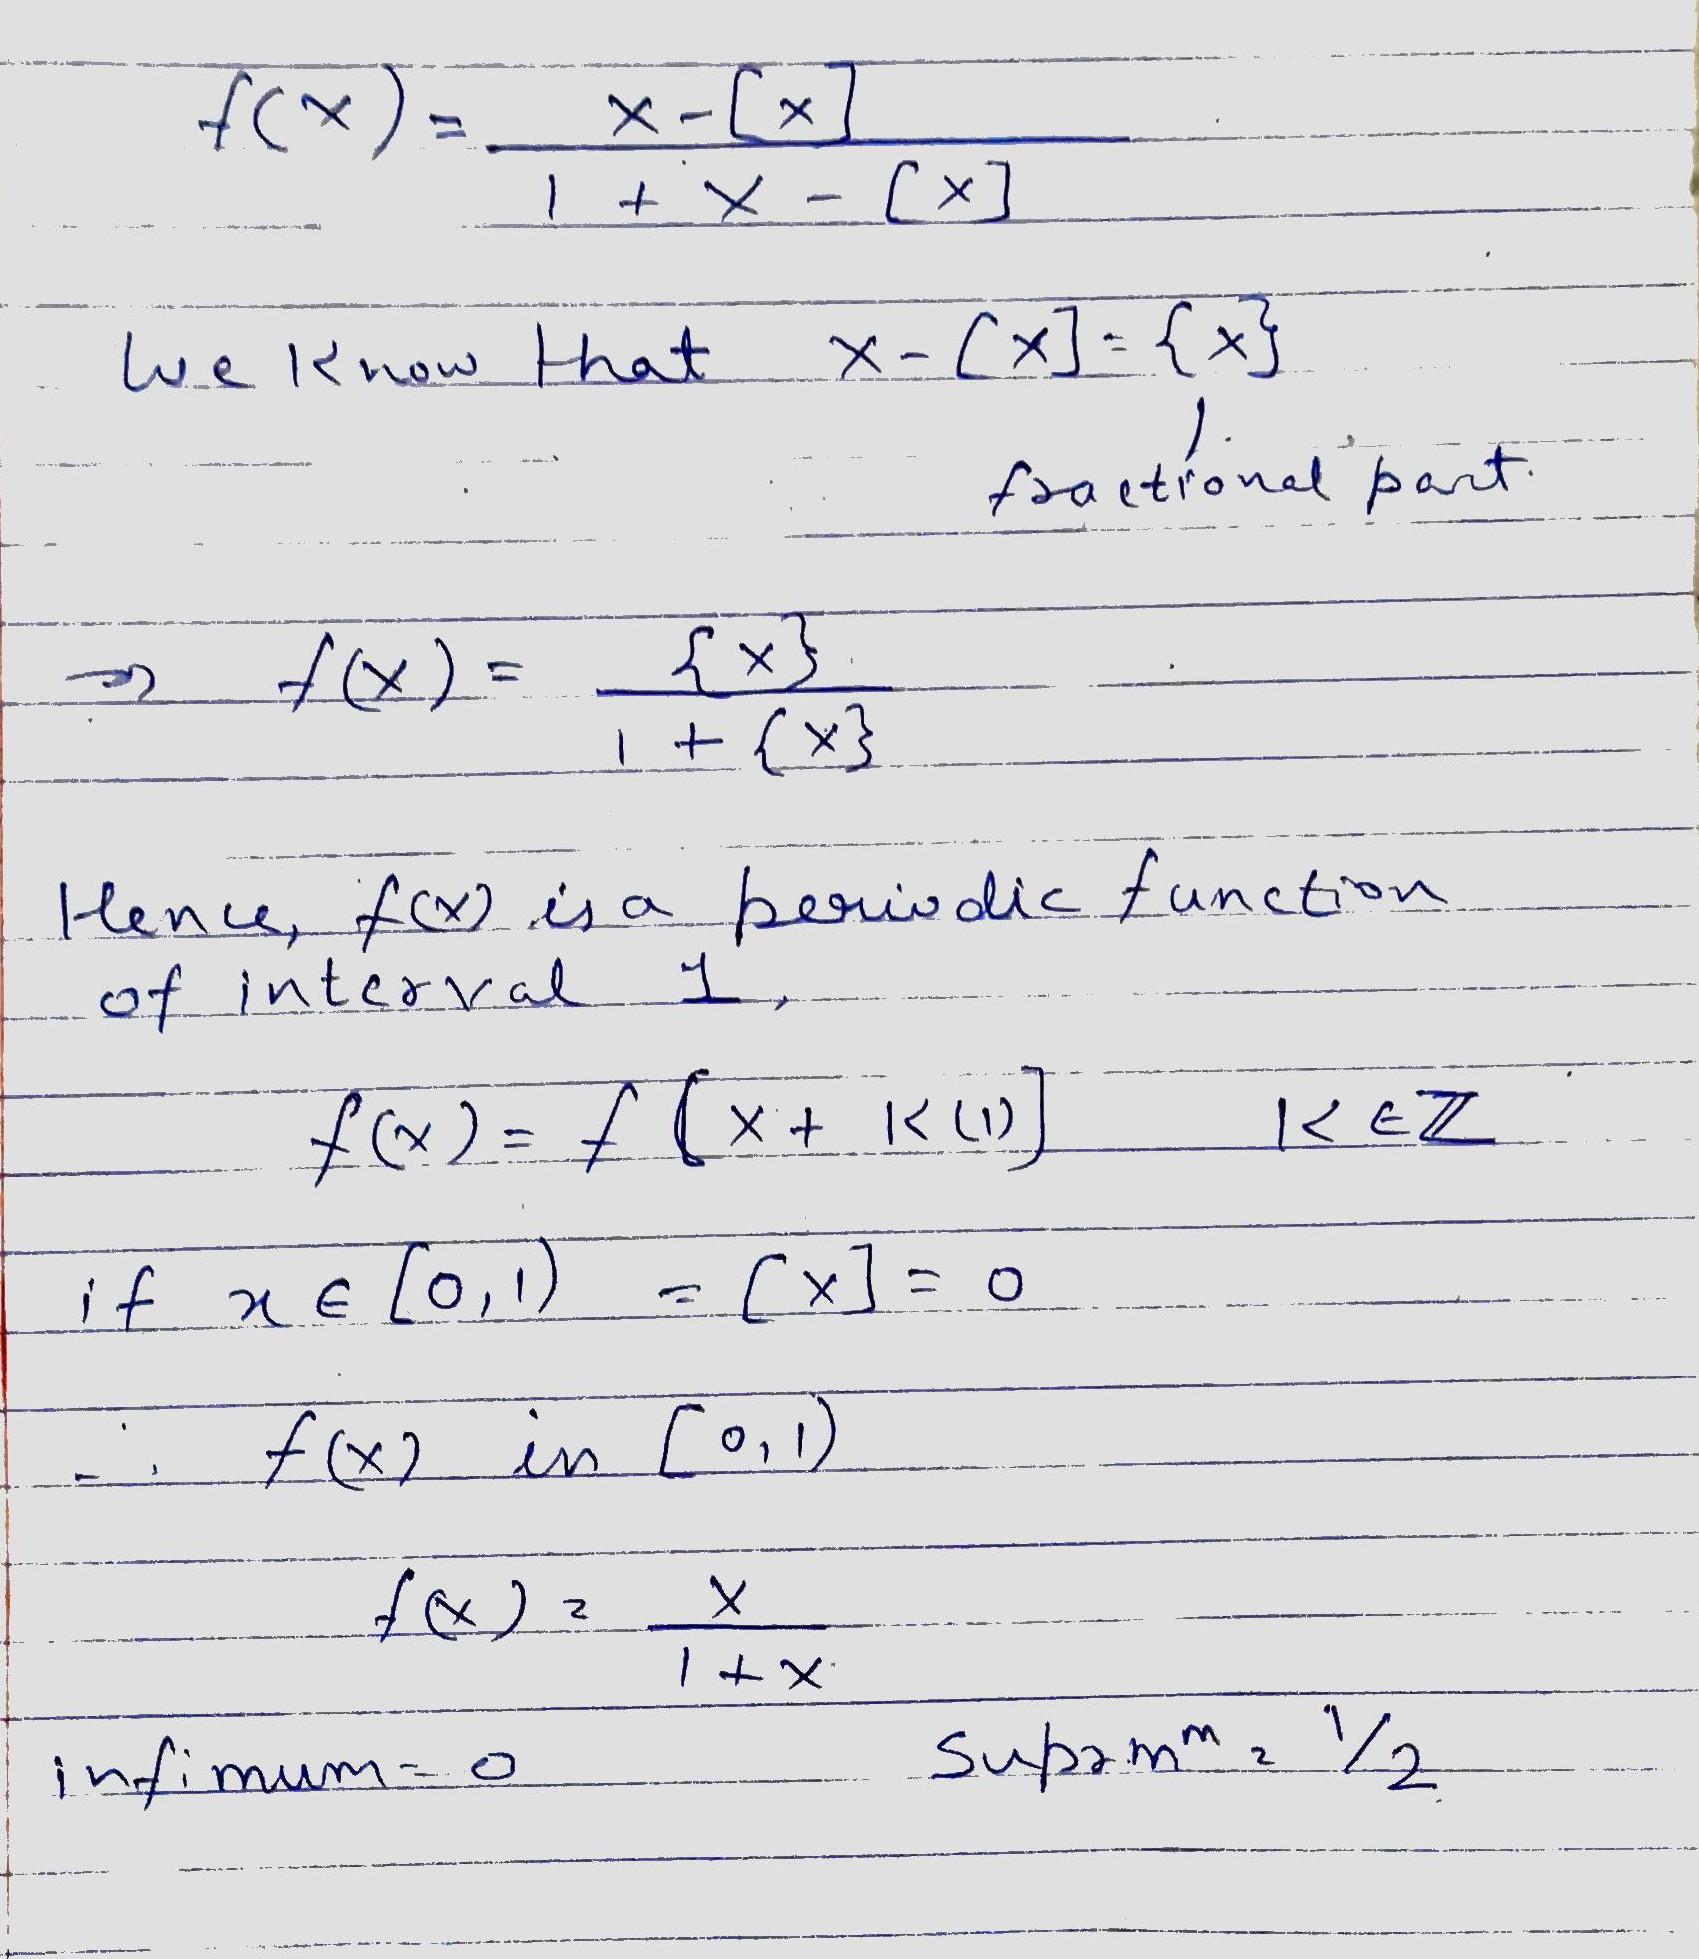 f(x) = x-[x]
1 + x - [x]
We know that x-[x]={x}
fractional part.
⇒ f(x) = {x}
1 + {x}
Hence, f(x) is a periodic function
of interval 1,
f(x) = f[x + K(1)] K ∈ ℤ
if x ∈ [0,1) = [x] = 0
∴ f(x) in [0,1)
f(x) = x
1+x
infimum = 0 Suprmᵐ = 1/2